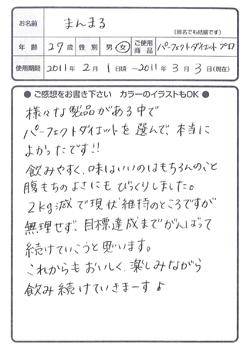 お名前 まんまる
(匿名でも結構です)
年齢 27歳 性別 男・女 ご使用商品 パーフェクトダイエットプロ
使用期間 2011年2月1日頃～2011年3月3日(現在)
●ご感想をお書き下さい カラーのイラストもOK●
様々な製品がある中で
パーフェクトダイエットを選んで本当に
よかったです!!
飲みやすく、味はいいのはもちろんのこと
腹もちのよさにもびっくりしました。
2kg減で現状維持のところですが
無理せず、目標達成までがんばって
続けていこうと思います。
これからもおいしく、楽しみながら
飲み続けていきまーす♪